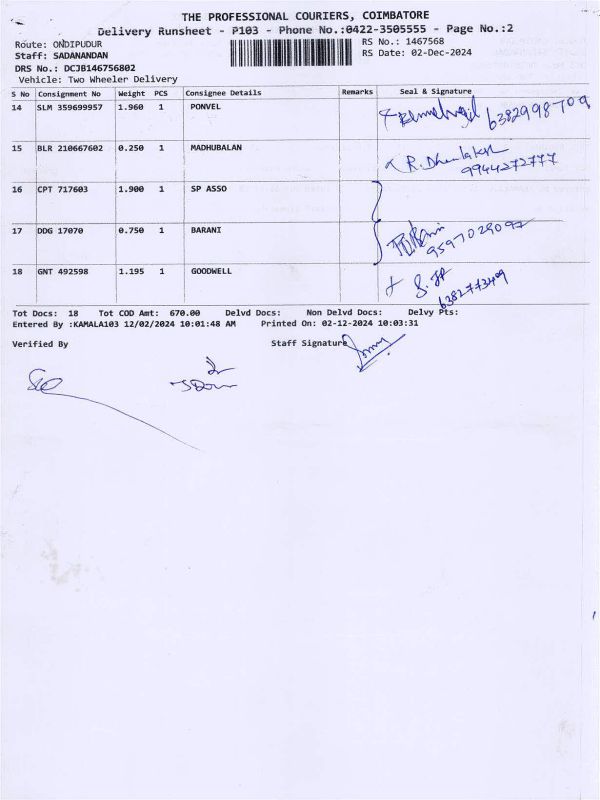 THE PROFESSIONAL COURIERS, COIMBATORE
Delivery Runsheet - P103 - Phone No.:0422-3505555 - Page No.:2
Route: ONDIPUDUR RS No.: 1467568
Staff: SADANANDAN RS Date: 02-Dec-2024
DRS No.: DCJB146756802
Vehicle: Two Wheeler Delivery
S No Consignment No Weight PCS Consignee Details Remarks Seal & Signature
14 SLM 359699957 1.960 1 PONVEL 6382998709
15 BLR 210667602 0.250 1 MADHUBALAN R. Dhanalakshmi
9944272777
16 CPT 717603 1.900 1 SP ASSO
17 DDG 17070 0.750 1 BARANI 9597029097
18 GNT 492598 1.195 1 GOODWELL
6382773409
Tot Docs: 18 Tot COD Amt: 670.00 Delvd Docs: Non Delvd Docs: Delvy Pts:
Entered By :KAMALA103 12/02/2024 10:01:48 AM Printed On: 02-12-2024 10:03:31
Verified By Staff Signature